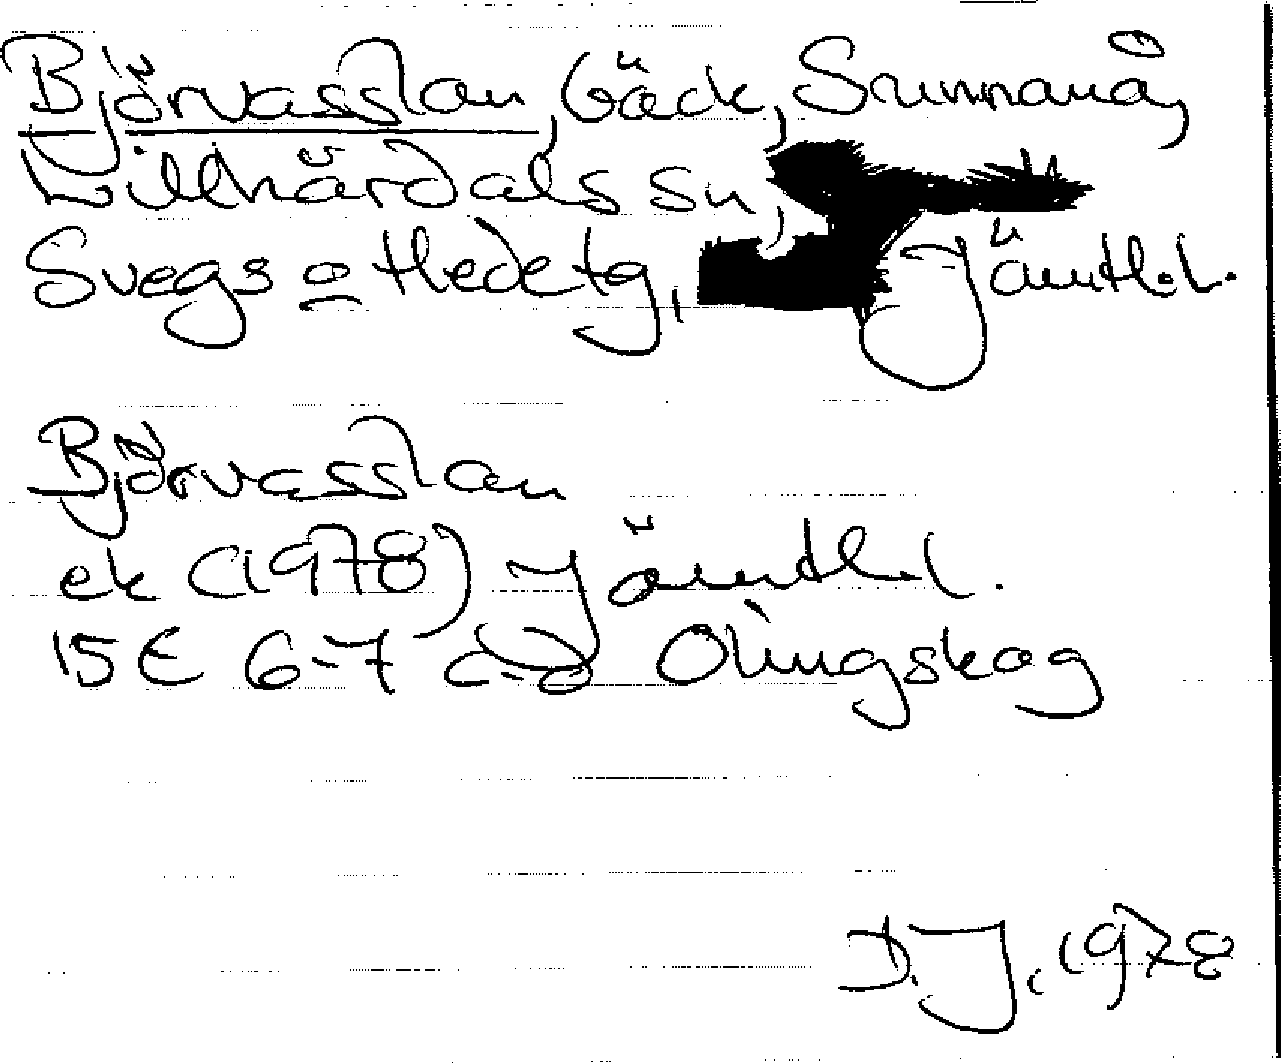 Björvasslan, bäck, Sunnanå,
Lillhärdals sn,
Svegs o Hedetg, Jämtl.l.
Björvasslan
ek (1978) Jämtl.l.
15E 6-7 c-d Olingskog
D.J. 1978